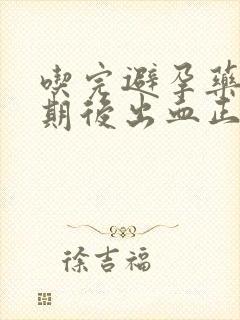 喫完避孕藥
期後出血正
徐吉福